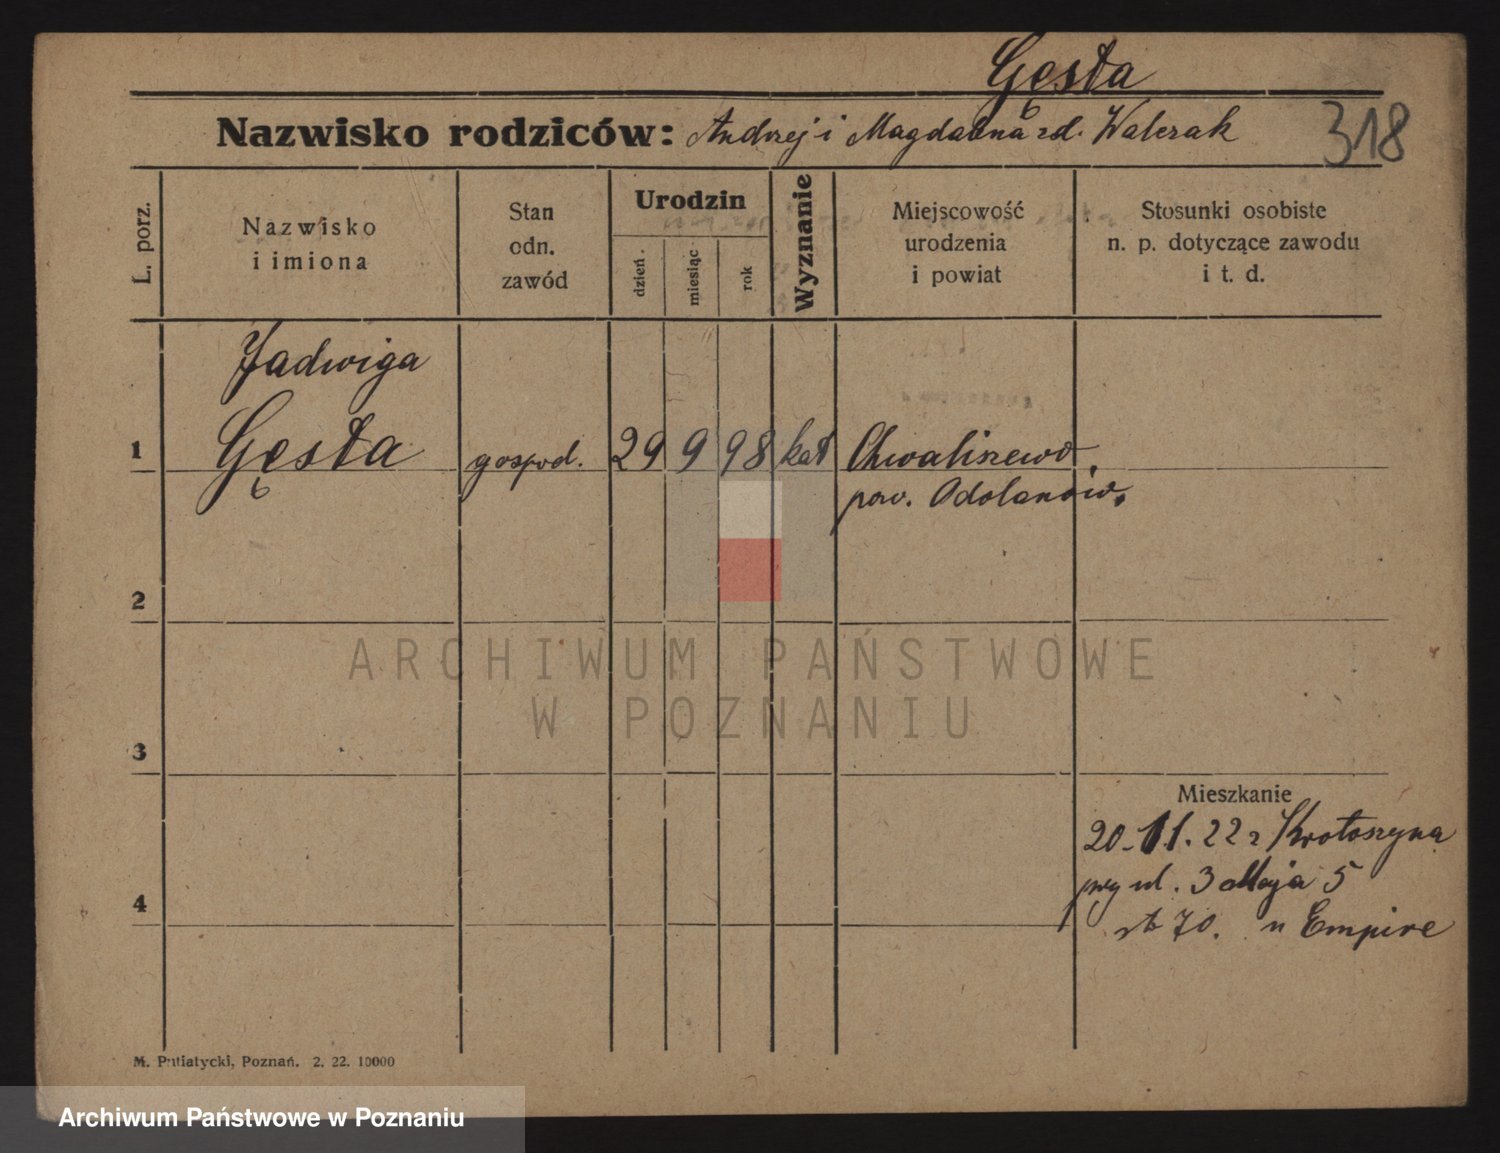 Gęsta
Nazwisko rodziców: Andrzej i Magdalena zd. Walczak
318
L. porz.
Nazwisko
i imiona
Stan
odn.
zawód
Urodzin
dzień.
miesiąc
rok
Wyznanie
Miejscowość
urodzenia
i powiat
Stosunki osobiste
n. p. dotyczące zawodu
i t. d.
Jadwiga
1 Gęsta gospod. 29 9 98 kat Chwaliszewo
pow. Odolanów.
2
ARCHIWUM PAŃSTWOWE
W POZNANIU
3
Mieszkanie
20.11.22 z Krotoszyna
przy ul. 3 Maja 5
4
70. u Empire
M. Putiatycki, Poznań. 2. 22. 10000
Archiwum Państwowe w Poznaniu